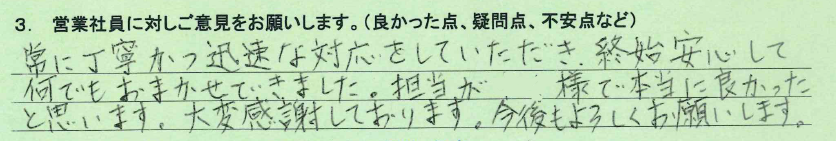 3. 営業社員に対しご意見をお願いします。(良かった点、疑問点、不安点など)
常に丁寧かつ迅速な対応をしていただき、終始安心して
何でもおまかせできました。担当が 様で本当に良かった
と思います。大変感謝しております。今後もよろしくお願いします。